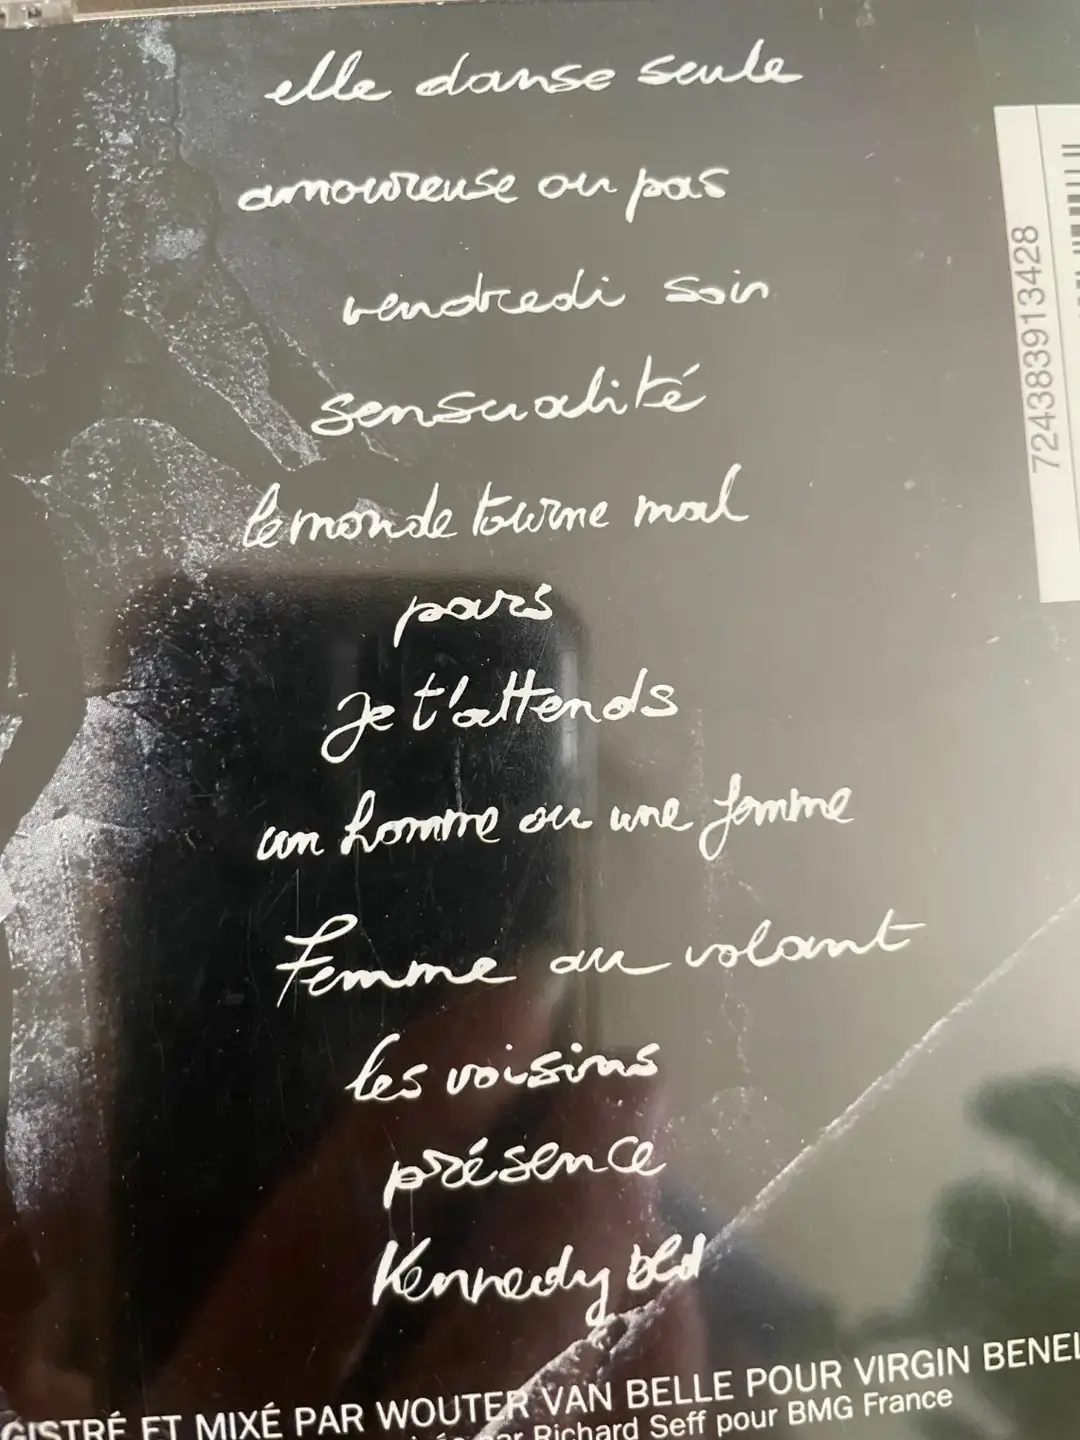 elle danse seule
amoureuse ou pas
vendredi soir
sensualité
le monde tourne mal
pars
je t'attends
un homme ou une femme
Femme au volant
les voisins
présence
Kennedy bld
724383913428
GISTRÉ ET MIXÉ PAR WOUTER VAN BELLE POUR VIRGIN
par Richard Seff pour BMG France